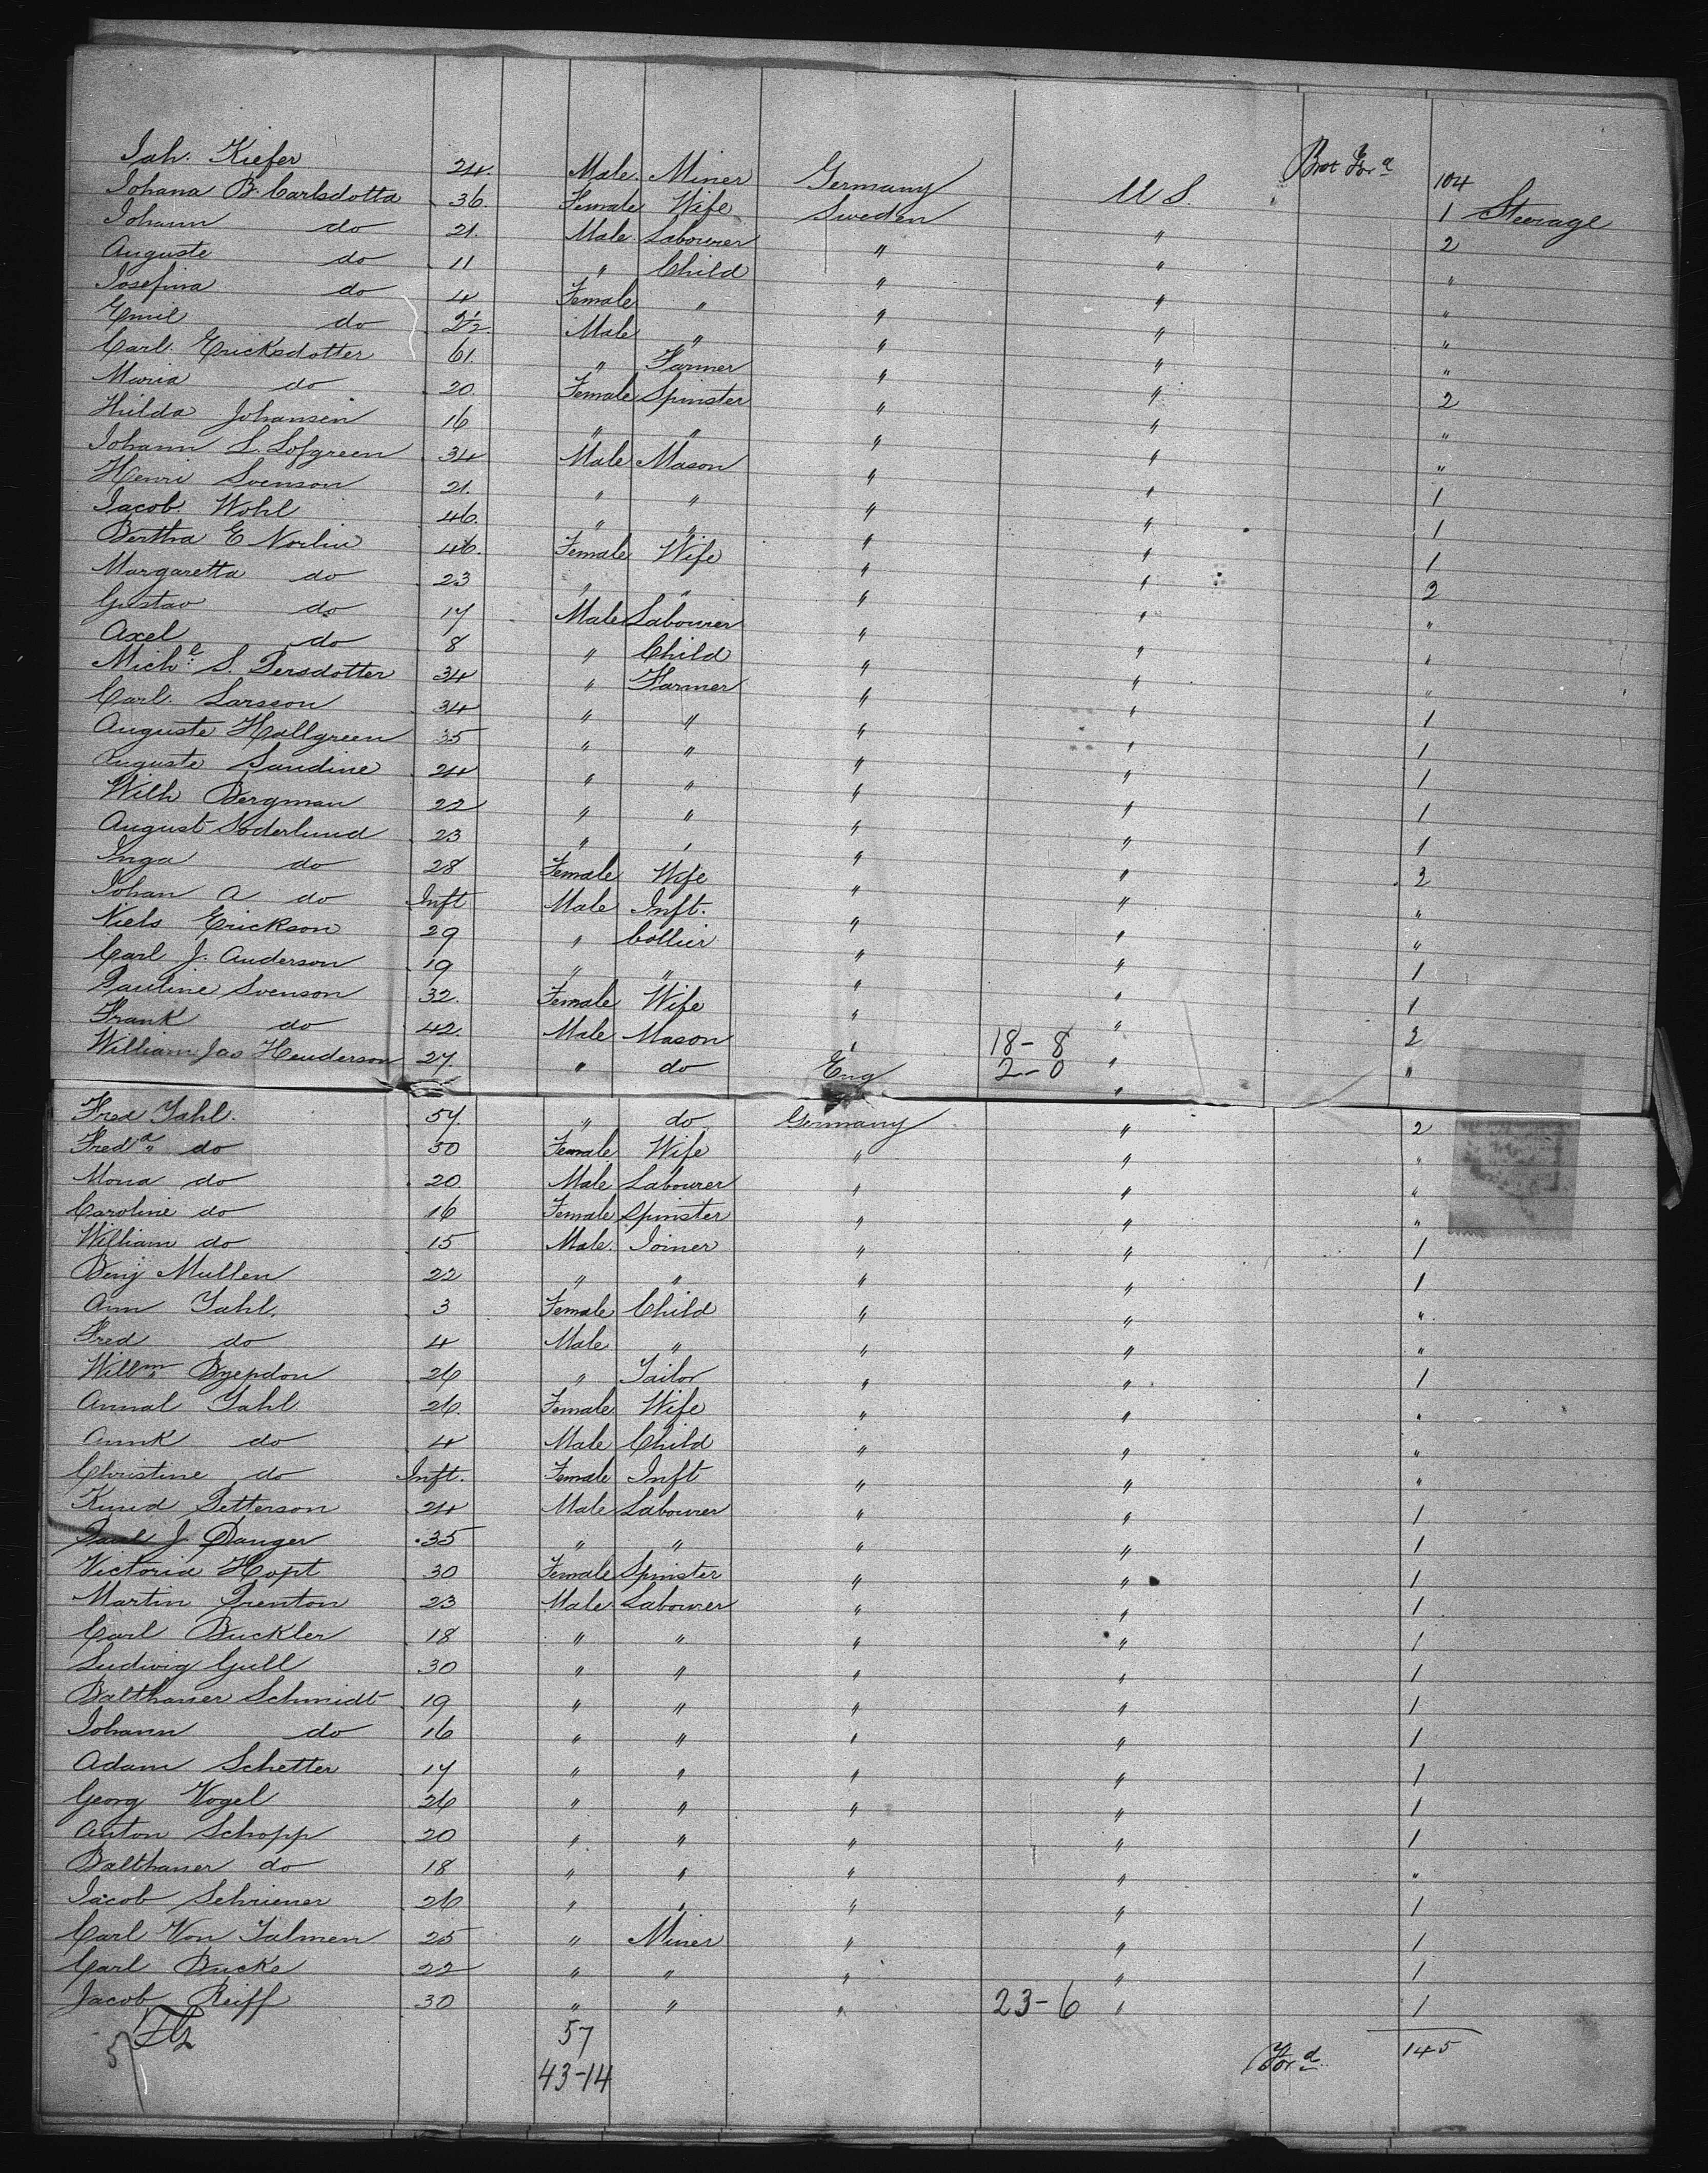 Bot Ford 104
Joh. Kiefer 24. Male. Miner Germany U S. 1 Steerage
Johana B. Carlsdotta 36 Female Wife Sweden " 2
Johann do 21. Male Labourer " " "
Auguste do 11 " Child " " "
Josefina do 4 Female " " " "
Emil do 2½ Male " " " "
Carl. Ericksdotter 61. " Farmer " " 2
Maria do 20. Female Spinster " " "
Hilda Johansen 16 " " " " "
Johann L. Lofgreen 34 Male Mason " " 1
Henri Svenson 21. " " " " 1
Jacob. Wohl 46. " " " " 1
Bertha E Norlin 46. Female Wife " " 2
Margaretta do 23 " " " " "
Gustav do 17 Male Labourer " " "
Axel do 8 " Child " " "
Michl S. Persdotter 34 " Farmer " " 1
Carl. Larsson 34 " " " " 1
Auguste Hallgreen 35 " " " " 1
Auguste Sandine 24 " " " " 1
Wilh Bergman 22 " " " " 1
August Soderlund 23 " " " " 2
Inga do 28 Female Wife " " "
Johan A do Inft Male Inft. " " "
Niels Erickson 29 " Collier " " 1
Carl J. Anderson 19 " " " " 1
Pauline Svenson 32. Female Wife " " 2
Frank do 42. Male Mason " 18-8 " "
William Jas Henderson 27. " do Eng 2-0 "
Fred Jahl. 57. " do Germany " 2
Freda do 50 Female Wife " " "
Mona do 20. Male Labourer " " "
Caroline do 16 Female Spinster " " "
William do 15 Male. Joiner " " 1
Benj Mullen 22 " " " " 1
Ann Jahl. 3 Female Child " " "
Fred do 4 Male " " " "
Willm Bryepdon 26 " Tailor " " 1
Annal Jahl 26. Female Wife " " "
Annk do 4 Male Child " " "
Christine do Inft. Female Inft " " "
Knud Petterson 24 Male Labourer " " 1
Paul J. Danger 35 " " " " 1
Victoria Hopt 30 Female Spinster " " 1
Martin Prenton 23 Male Labourer " " 1
Carl Buckler 18 " " " " 1
Ludwig Gull 30 " " " " 1
Balthaner Schmidt 19 " " " " 1
Johann do 16 " " " " 1
Adam Schetter 17 " " " " 1
Georg Vogel 26 " " " " 1
Anton Schopp 20 " " " " 1
Balthaner do 18 " " " " "
Jacob Schriener 26 " " " " 1
Carl Von Jalmen 25 " Miner " " 1
Carl Bucke 22 " " " " 1
Jacob Reiff 30 " " " 23-6 " 1
57 Ford 145
43-14